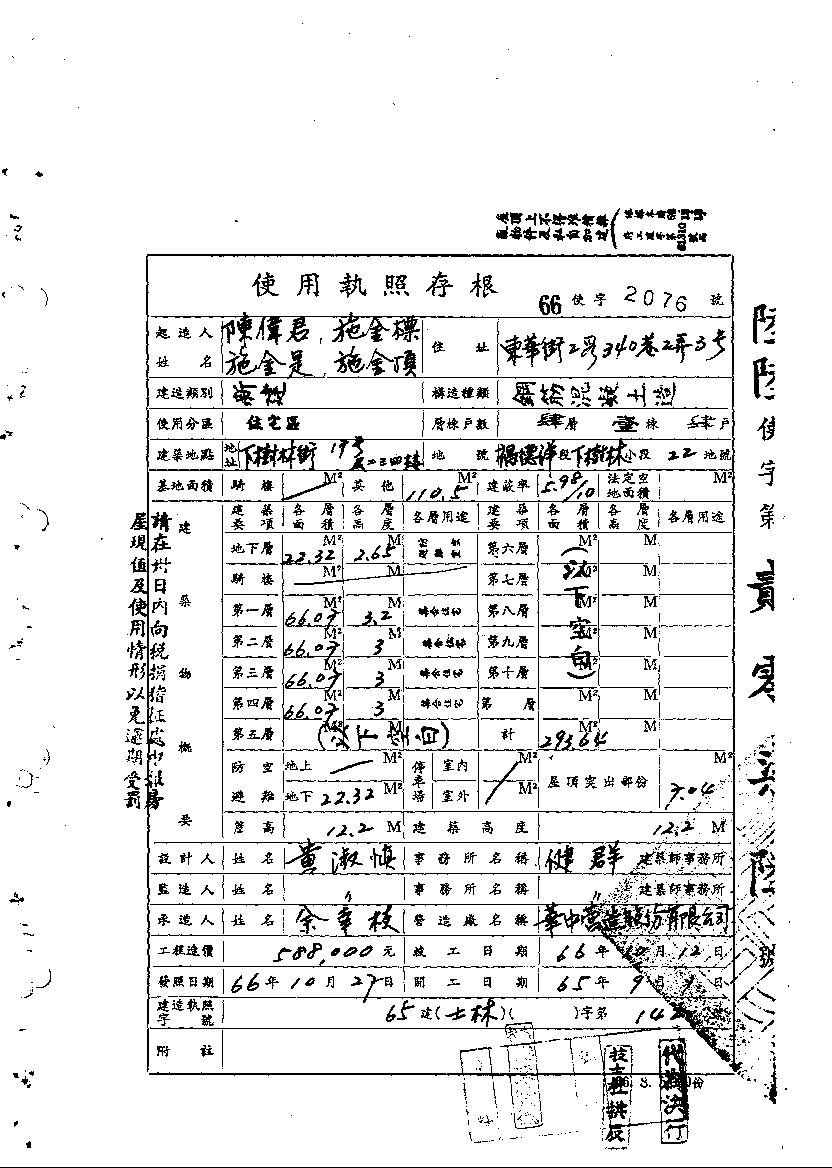 屋頂上不得
使用執照存根
66 使字 2076 號
起造人姓名 陳偉君、施金標 施金足、施金頂 住址 東華街2段340巷2弄3号
建造類別 構造種類 鋼筋混凝土造
使用分區 住宅區 層棟戶數 肆層 壹棟 肆戶
建築地點 地址 下樹林街 19号 地號 段下樹林小段 22 地號
基地面積 騎樓 M² 其他 110.5 M² 建蔽率 5.98/10 法定空地面積 M²
建築物概要 建築要項 各層面積 各層高度 各層用途 建築要項 各層面積 各層高度 各層用途
地下層 22.32 M² 2.65 M 第六層 M² M
騎樓 M² M 第七層 M² M
第一層 66.07 M² 3.2 M 集合住宅 第八層 M² M
第二層 66.07 M² 3 M 集合住宅 第九層 M² M
第三層 66.07 M² 3 M 集合住宅 第十層 M² M
第四層 66.07 M² 3 M 集合住宅 第 層 M² M
(以下空白)
第五層 M² M (以下空白) 計 293.64 M² M
防空避難 地上 M² 停車場 室內 M² 屋頂突出部份 7.04 M²
地下 22.32 M² 室外 M²
簷高 12.2 M 建築高度 12.2 M
設計人 姓名 黃淑慎 事務所名稱 健群 建築師事務所
監造人 姓名 〃 事務所名稱 〃 建築師事務所
承造人 姓名 余幸枝 營造廠名稱 華中營造股份有限公司
工程造價 588,000 元 竣工日期 66年10月12日
發照日期 66年10月27日 開工日期 65年9月1日
建造執照字號 65建(士林)( )字第 142
附註
請在 日內向稅捐稽征處申報房
屋現值及使用情形以免逾期受罰
陸陸使字第貳零 陸號
代為決行
技士杜拱辰